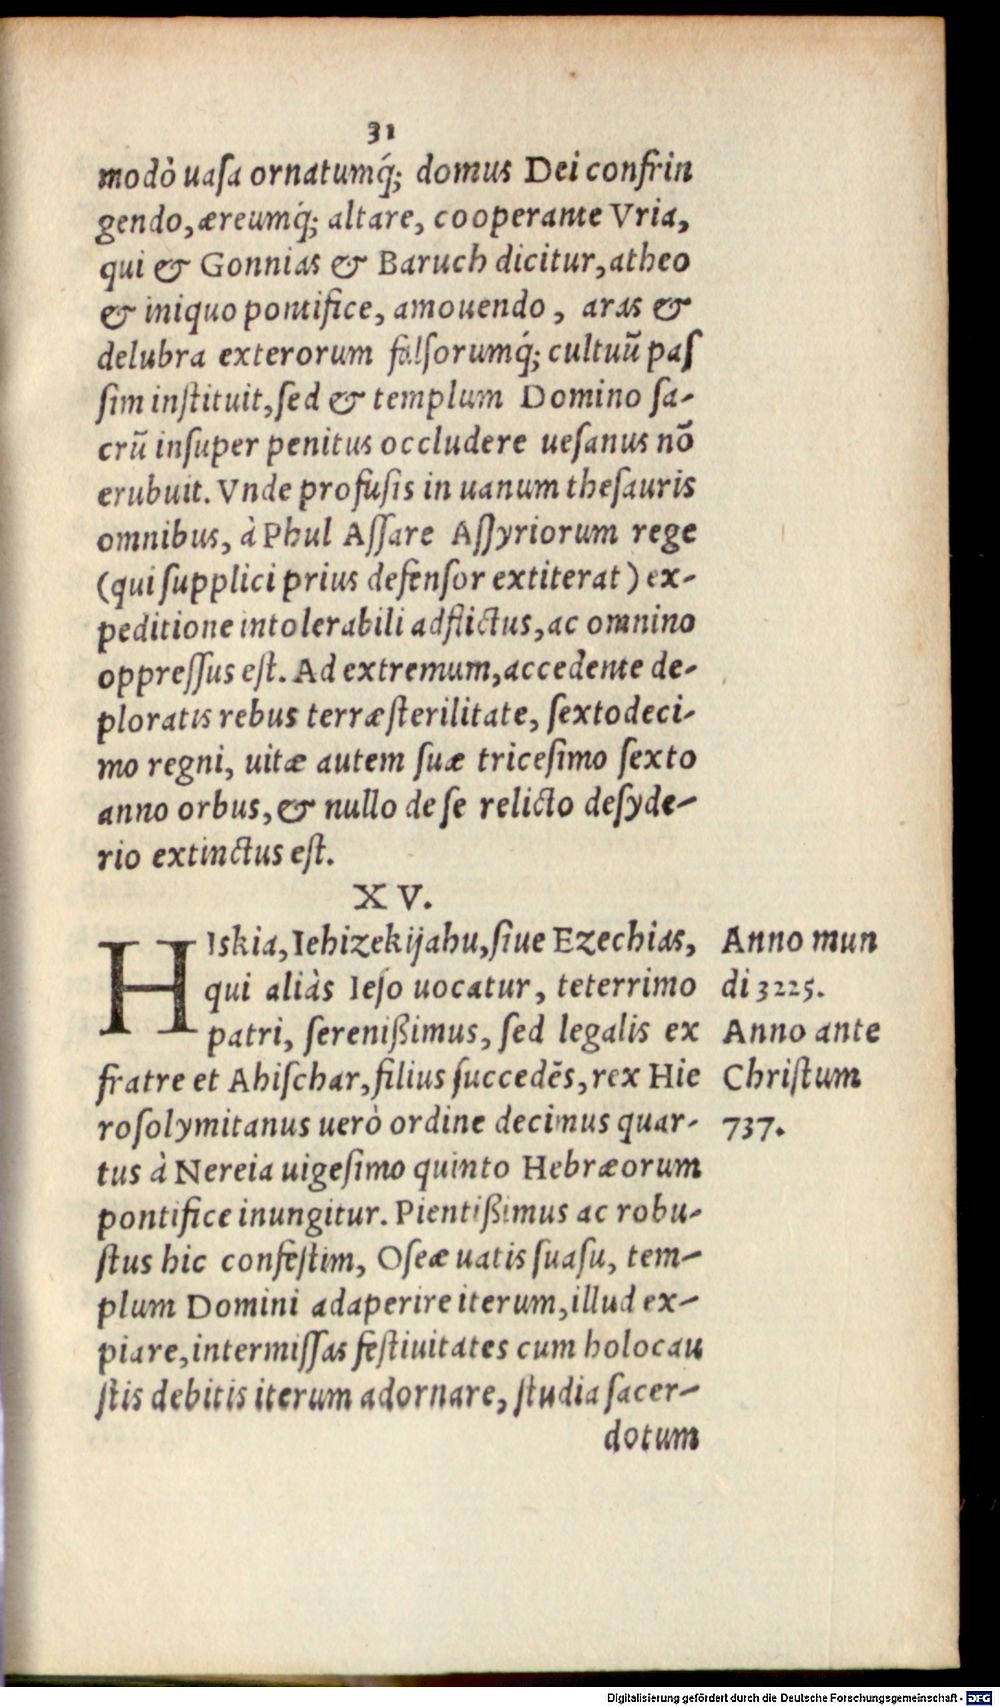 31
modò uaſa ornatumq́; domus Dei confrin
gendo, æreumq́; altare, cooperante Vria,
qui & Gonnias & Baruch dicitur, atheo
& iniquo pontifice, amouendo, aras &
delubra exterorum falſorumq́; cultuũ paſ
ſim inſtituit, ſed & templum Domino ſa-
crũ inſuper penitus occludere ueſanus nõ
erubuit. Vnde profuſis in uanum theſauris
omnibus, à Phul Aſſare Aſſyriorum rege
(qui ſupplici prius defenſor extiterat) ex-
peditione intolerabili adflictus, ac omnino
oppreſſus eſt. Ad extremum, accedente de-
ploratis rebus terræ ſterilitate, ſextodeci-
mo regni, uitæ autem ſuæ triceſimo ſexto
anno orbus, & nullo de ſe relicto deſyde-
rio extinctus eſt.
XV.
HIskia, Iehizekijahu, ſiue Ezechias,
qui aliàs Ieſo uocatur, teterrimo
patri, ſerenißimus, ſed legalis ex
fratre et Ahiſchar, filius ſuccedẽs, rex Hie
roſolymitanus uerò ordine decimus quar-
tus à Nereia uigeſimo quinto Hebræorum
pontifice inungitur. Pientißimus ac robu-
ſtus hic confeſtim, Oſeæ uatis ſuaſu, tem-
plum Domini adaperire iterum, illud ex-
piare, intermiſſas feſtiuitates cum holocau
ſtis debitis iterum adornare, ſtudia ſacer-
dotum
Anno mun
di 3225.
Anno ante
Chriſtum
737.
Digitalisierung gefördert durch die Deutsche Forschungsgemeinschaft - DFG